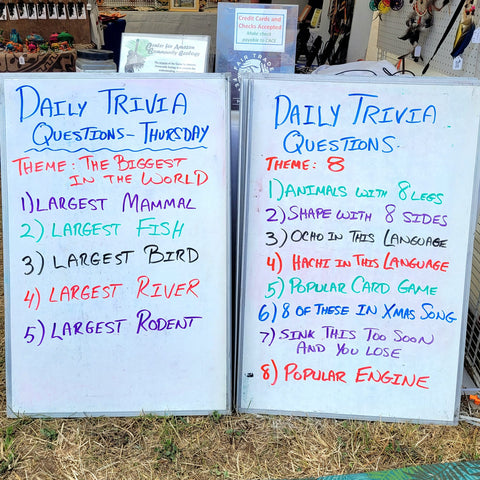 Credit Cards and
Checks Accepted
Make check
payable to CACE
FAIR TRADE
Center for Amazon
Community Ecology
DAILY TRIVIA
QUESTIONS - THURSDAY
THEME: THE BIGGEST
IN THE WORLD
1) LARGEST MAMMAL
2) LARGEST FISH
3) LARGEST BIRD
4) LARGEST RIVER
5) LARGEST RODENT
DAILY TRIVIA
QUESTIONS.
THEME: 8
1) ANIMALS WITH 8 LEGS
2) SHAPE WITH 8 SIDES
3) OCHO IN THIS LANGUAGE
4) HACHI IN THIS LANGUAGE
5) POPULAR CARD GAME
6) 8 OF THESE IN XMAS SONG
7) SINK THIS TOO SOON
AND YOU LOSE
8) POPULAR ENGINE